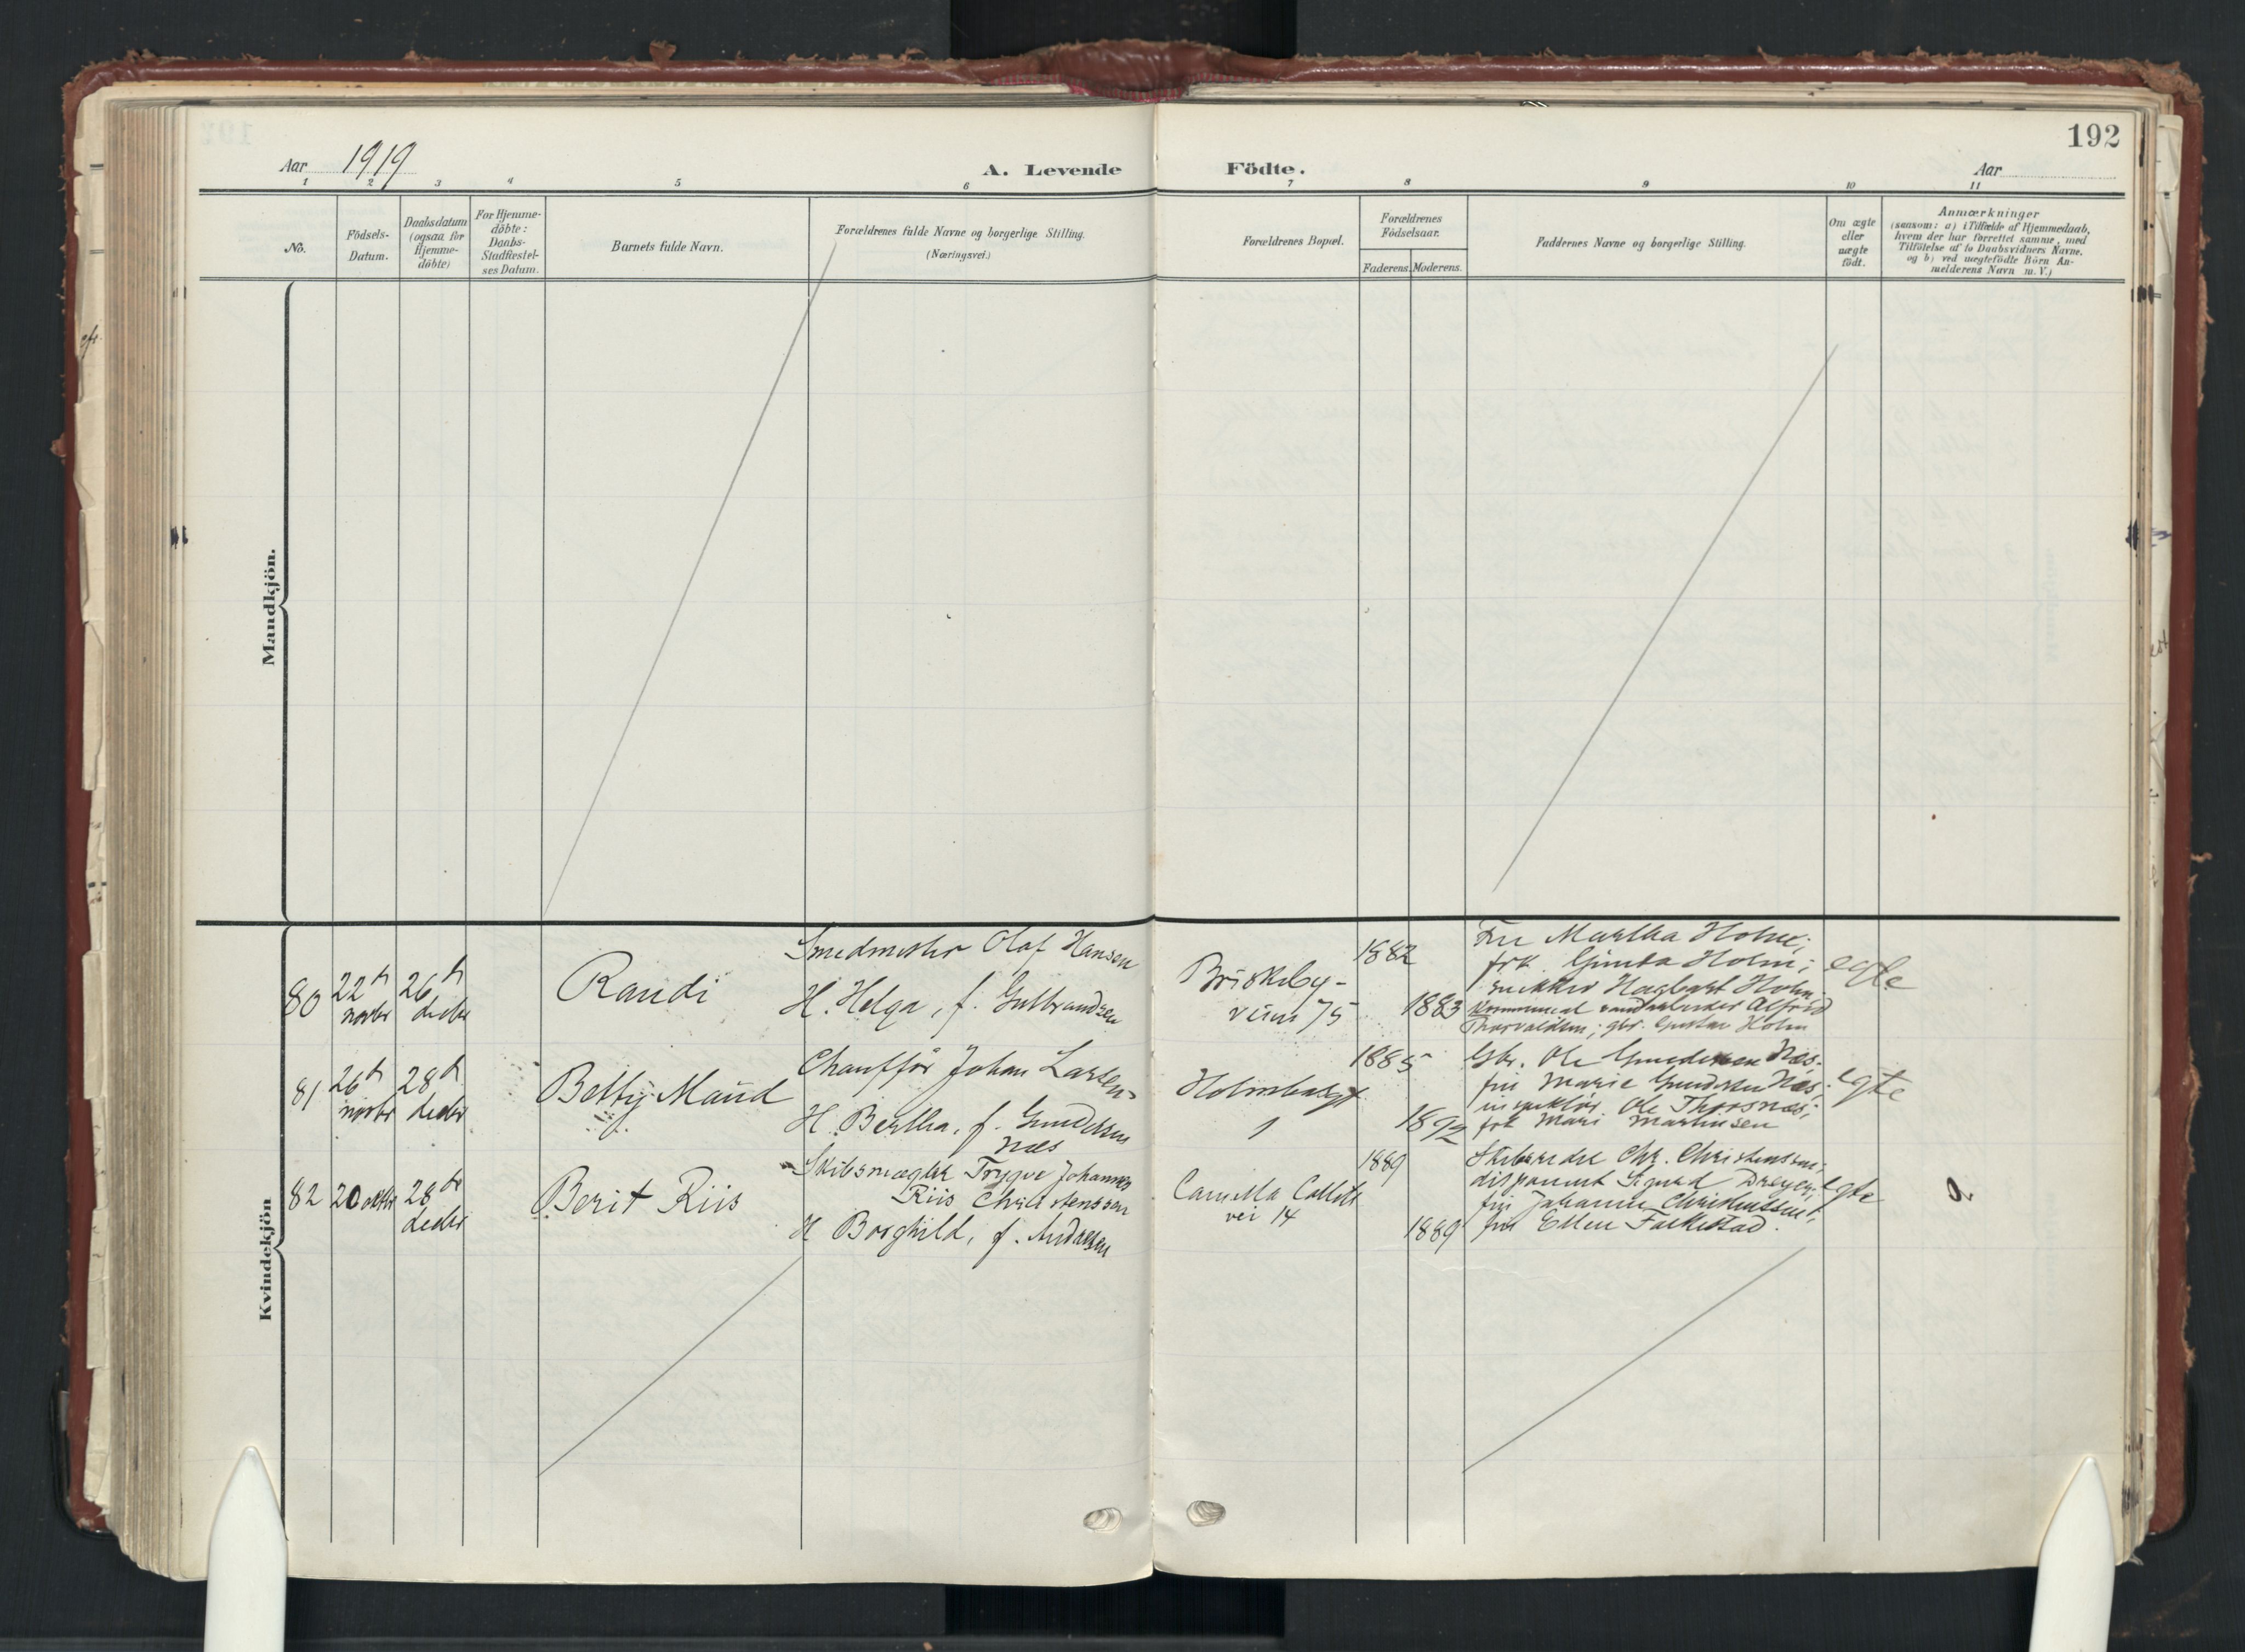 192
Aar 1919
A. Levende Födte.
Aar
1 2 3 4 5 6 7 8 9 10 11
No.
Födsels-
Datum.
Daabsdatum
(ogsaa for
Hjemme-
döbte)
For Hjemme-
döbte:
Daabs-
Stadfæstel-
ses Datum.
Barnets fulde Navn.
Forældrenes fulde Navne og borgerlige Stilling.
(Næringsvei.)
Forældrenes Bopæl.
Forældrenes
Födselsaar.
Faderens.
Moderens.
Faddernes Navne og borgerlige Stilling.
Om ægte
eller
uægte
födt.
Anmærkninger
(saasom: a) i Tilfælde af Hjemmedaab,
hvem der har forrettet samme, med
Tilföielse af to Daabsvidners Navne,
og b) ved uægtefödte Börn An-
melderens Navn m. V.)
Mandkjön.
Kvindekjön
80
22de
novbr
26de
decbr
Randi
Smedmester Olaf Hansen
H. Helga, f. Gulbrandsen
Briskeby-
veien 75
1882
1883
Fru Martha Holm;
frk. Gunda Holm;
snekker Hagbart Holm;
Kommunal vandarbeider Alfred
Thorvaldsen; gbr. Gustav Holm
egte
81
26de
novbr
28de
decbr
Betty Maud
Chauffør Johan Larsen
H. Bertha, f. Gundersen
Næs
Holmbagt
1
1885
1892
Gbr. Ole Gundersen Næs;
fru Marie Gundersen Næs;
inspektør Ole Thorsnæs;
frk Mari Martinsen
egte
82
20 oktbr
28de
decbr
Berit Riis
Skibsmægler Trygve Johannes
Riis Christenssen
H Borghild, f. Andresen
Camilla Colletts
vei 14
1889
1889
Skibsreder Chr. Christenssen;
disponent Sigurd Dreyer;
fru Johanne Christenssen;
frk Ellen Falkestad.
egte